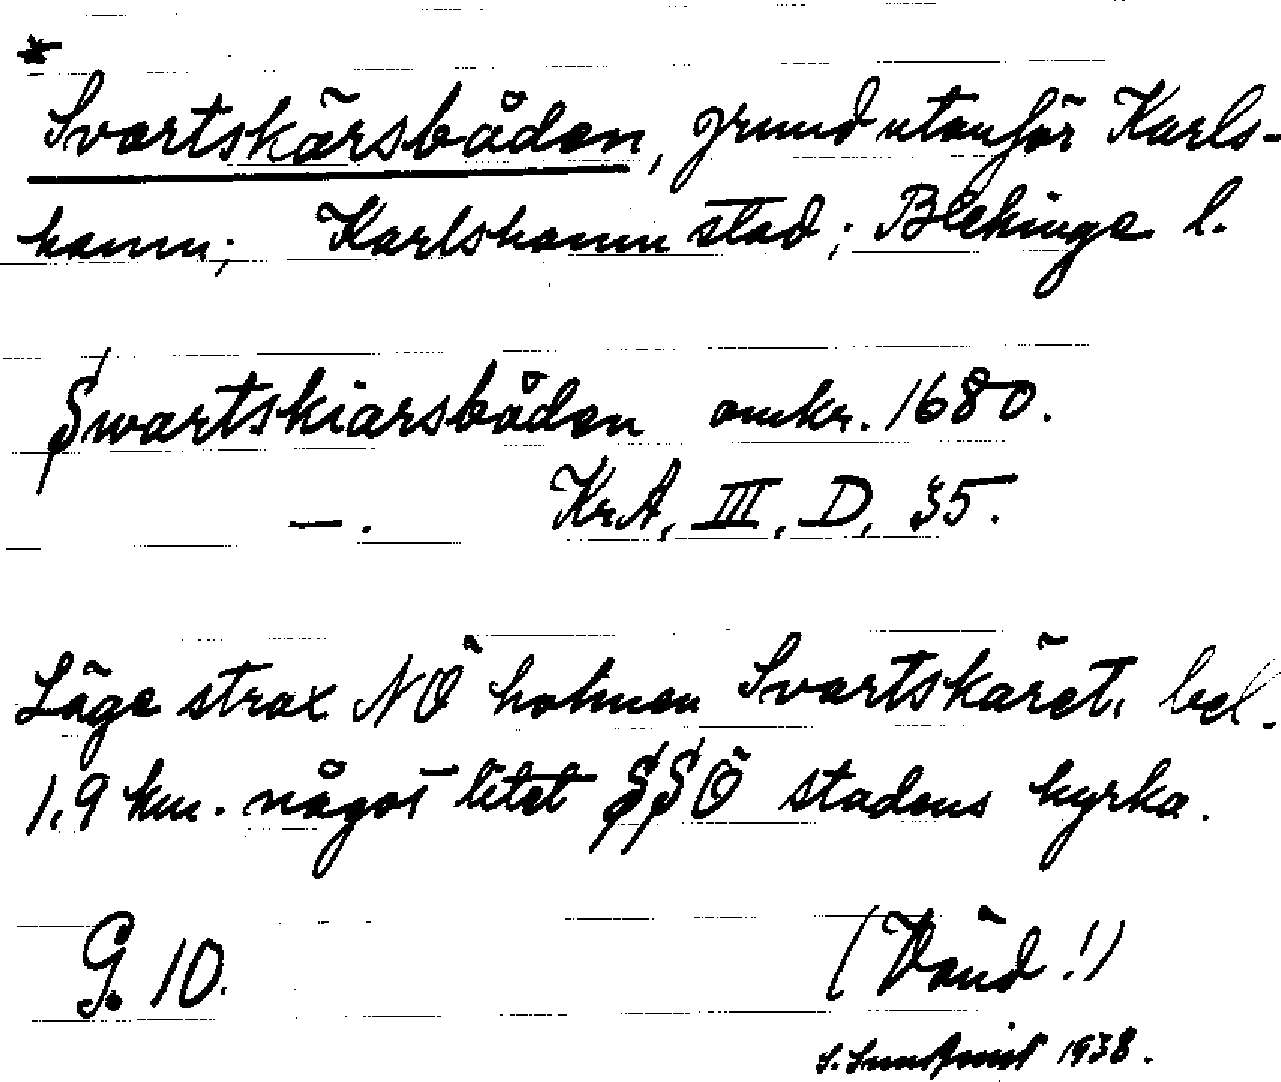 *
Svartskärsbåden, grund utanför Karls-
hamn; Karlshamn stad; Blekinge l.
Swartskiärsbåden omkr. 1680.
—. KrA, III, D, 35.
Läge strax NÖ holmen Svartskäret, bel.
1,9 km. något litet SSÖ stadens kyrka.
G. 10. (Vänd!)
S. Sundqvist 1938.